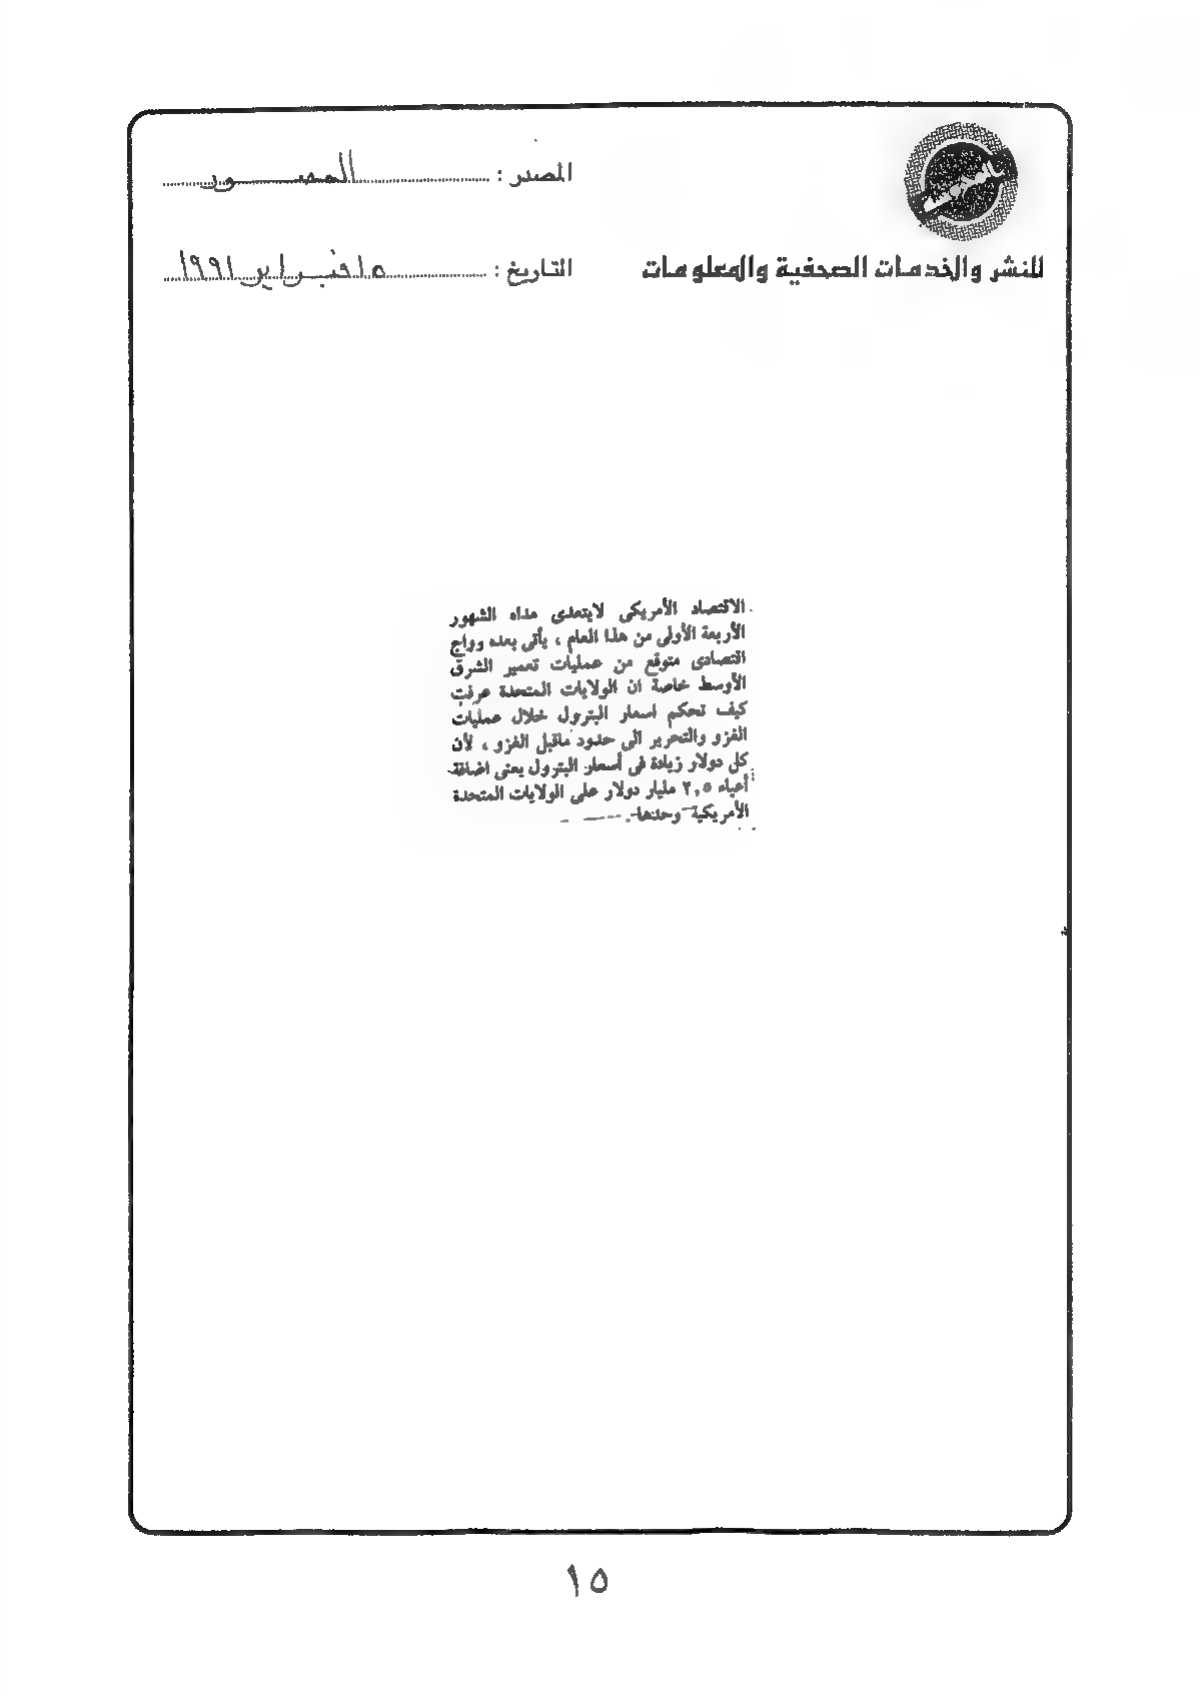 المصدر : المصور
للنشر والخدمات الصحفية والمعلومات
التاريخ : ١٥ فبراير ١٩٩١
الاقتصاد الأمريكى لايتعدى مداه الشهور
الأربعة الأولى من هذا العام ، يأتى بعده رواج
اقتصادى متوقع من عمليات تعمير الشرق
الأوسط خاصة ان الولايات المتحدة عرفت
كيف تحكم اسعار البترول خلال عمليات
الغزو والتحرير الى حدود ماقبل الغزو ، لأن
كل دولار زيادة فى أسعار البترول يعنى اضافة
أعباء ٢,٥ مليار دولار على الولايات المتحدة
الأمريكية وحدها .
١٥